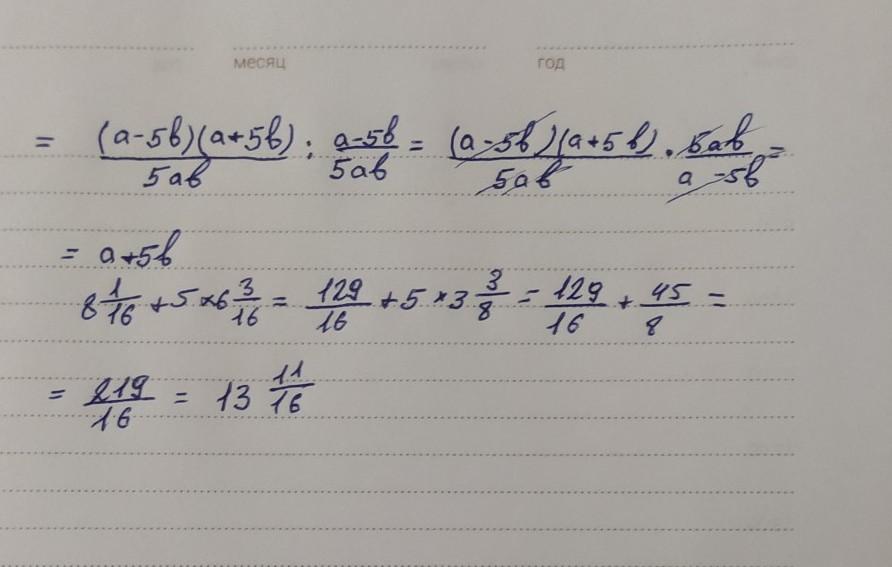 месяц год
= (a-5b)(a+5b)/5ab : a-5b/5ab = (a-5b)(a+5b)/5ab · 5ab/a-5b =
= a+5b
8 1/16 + 5 × 6 3/16 = 129/16 + 5 × 3 3/8 = 129/16 + 45/8 =
= 219/16 = 13 11/16